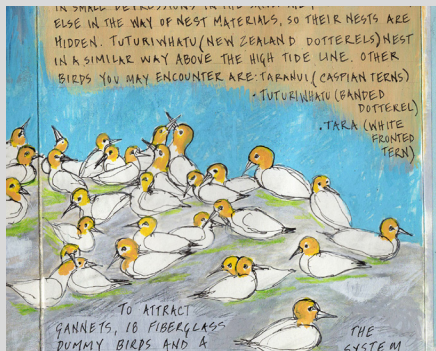 IN SMALL DEPRESSIONS IN THE SAND. THEY
ELSE IN THE WAY OF NEST MATERIALS, SO THEIR NESTS ARE
HIDDEN. TUTURIWHATU (NEW ZEALAND DOTTERELS) NEST
IN A SIMILAR WAY ABOVE THE HIGH TIDE LINE. OTHER
BIRDS YOU MAY ENCOUNTER ARE: TARANUI (CASPIAN TERNS)
• TUTURIWHATU (BANDED
DOTTEREL)
• TARA (WHITE
FRONTED
TERN)
TO ATTRACT
GANNETS, 18 FIBERGLASS
DUMMY BIRDS AND A
THE
SYSTEM